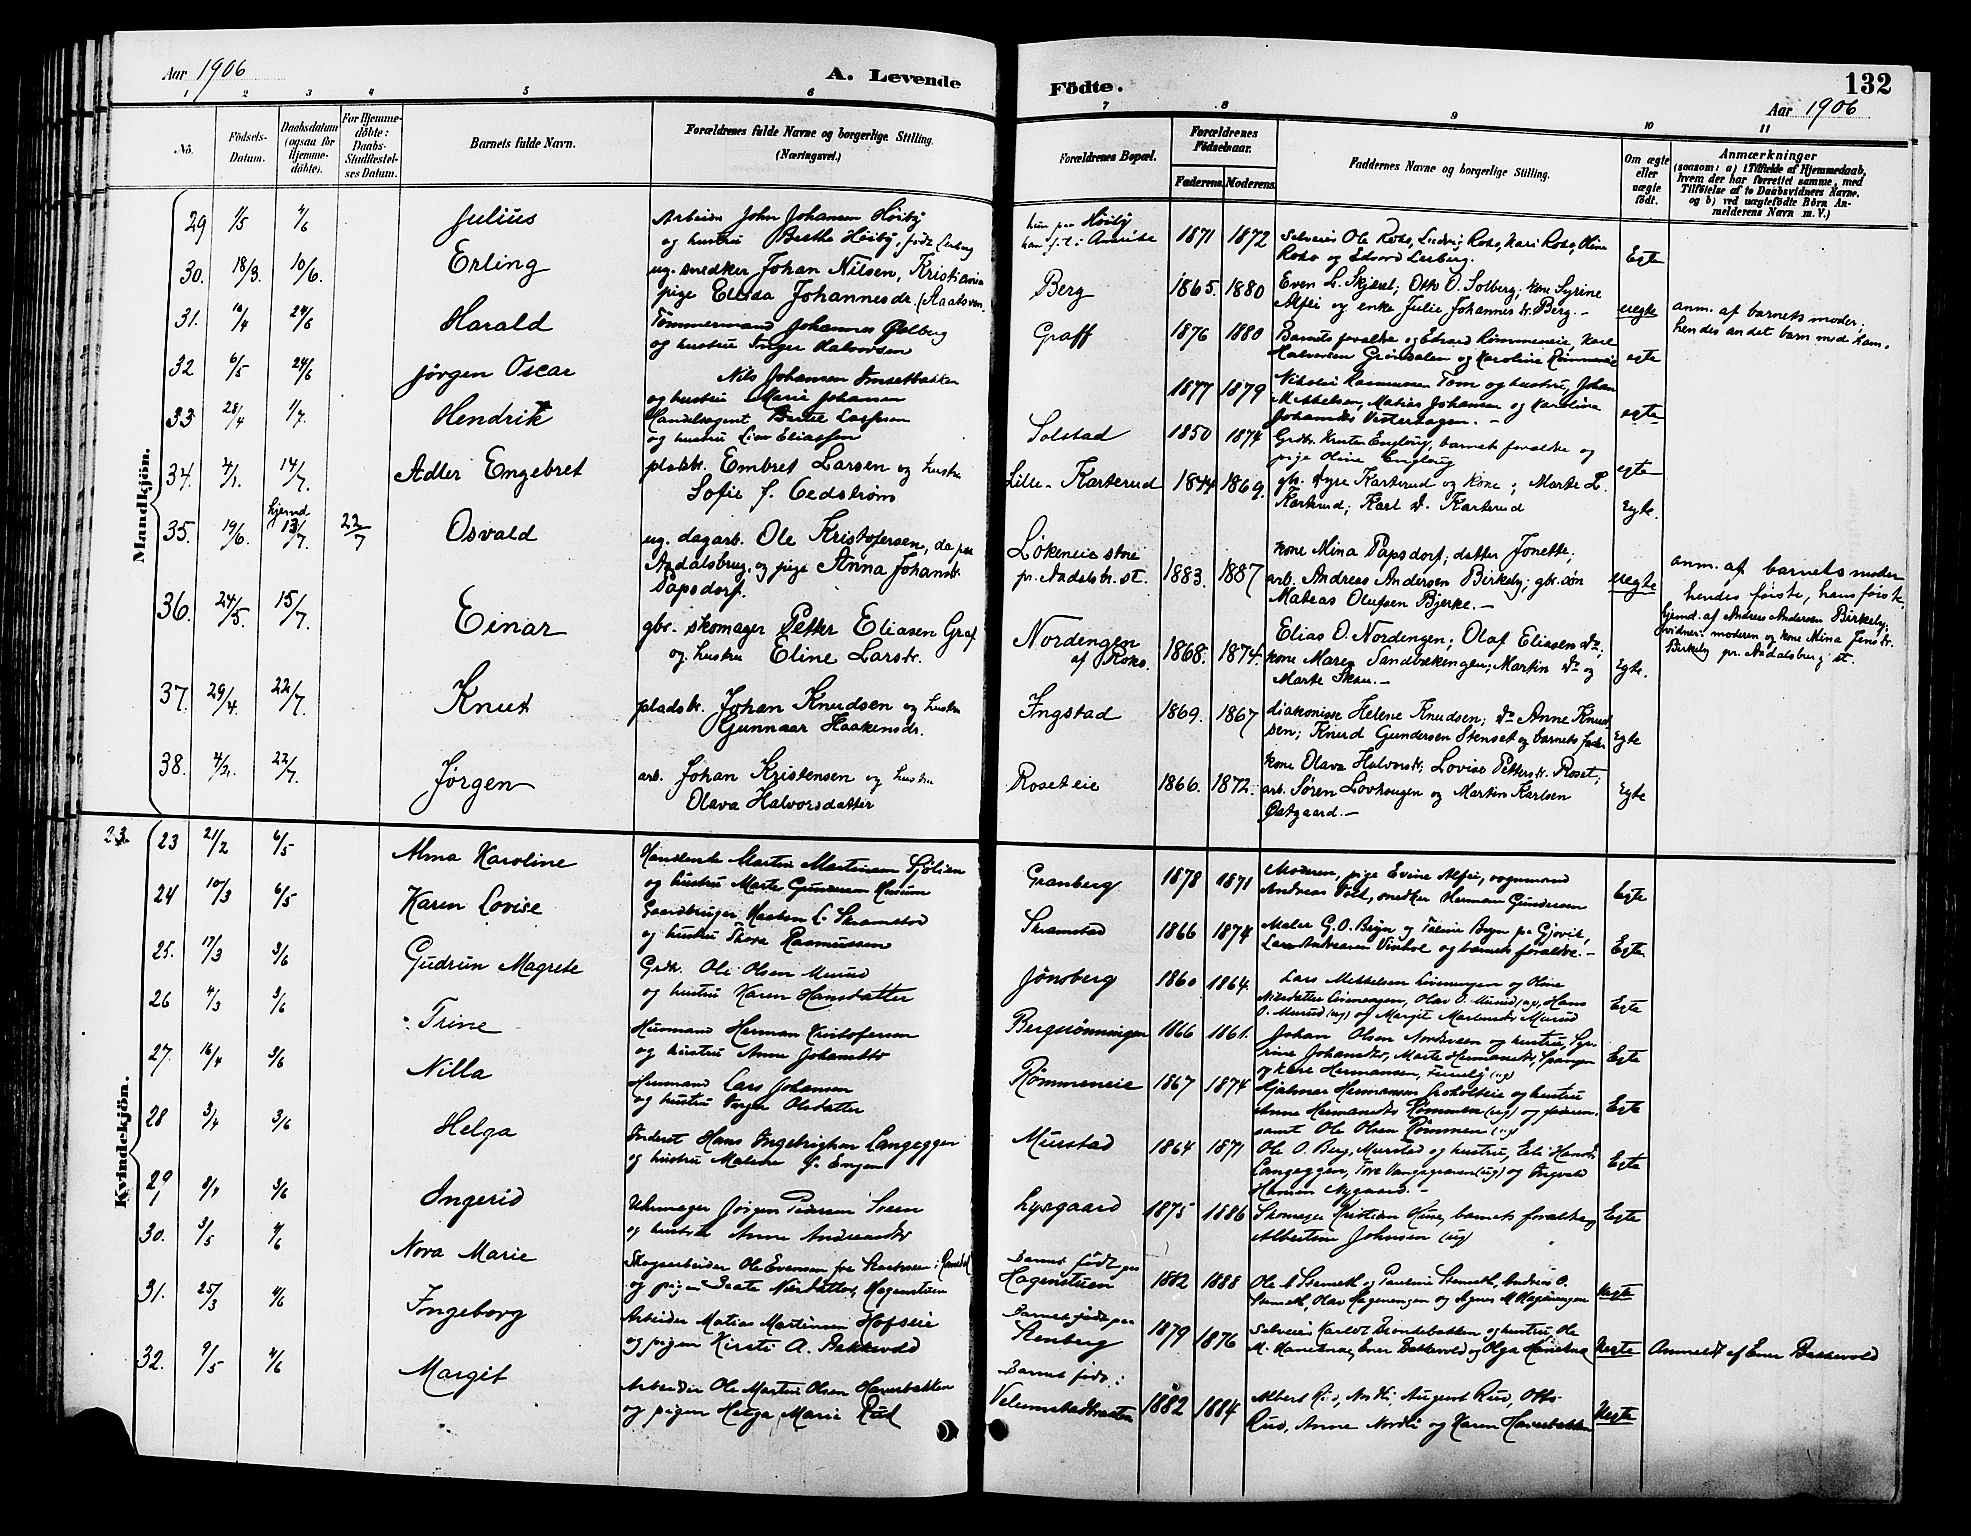 Aar 1906
A. Levende
Födte.
132
Aar 1906
1 2 3 4 5 6 7 8 9 10 11
No.
Födsels-Datum.
Daabsdatum (ogsaa for Hjemmedöbte).
For Hjemmedöbte: Daabs-Stadfæstelses Datum.
Barnets fulde Navn.
Forældrenes fulde Navne og borgerlige Stilling. (Næringsvei.)
Forældrenes Bopæl.
Forældrenes Födselsaar.
Faderens. Moderens.
Faddernes Navne og borgerlige Stilling.
Om ægte eller uægte født.
Anmærkninger
(saasom: a) i Tilfælde af Hjemmedaab, hvem der har forrettet samme, med Tilföielse af to Daabsvidners Navne. og b) ved uægtefödte Börn Anmelderens Navn m. V.)
Mandkjön.
29 1/5 4/6 Julius
Arbeider John Johansen Höiby
og hustru Berthe Höiby, född Lerberg
Höiby
i Amerika
1871 1872
Selveier Ole Roko, Ludvig Roko, Kari Roko, Oline
Roko og Edvard Lerberg.
Egte
30. 18/3. 10/6. Erling
ug. snedker Johan Nilsen, Kristiania
pige Elida Johannesdr.
Berg
1865. 1880
Even L. Skjæset; Otto O. Solberg; kone Syrine
Alfei og enke Julie Johannesdr. Berg.-
uegte
anm. af barnets moder;
hendes andet barn med ham.
31. 10/4 24/6 Harald
Tømmermand Johannes Ødberg
og hustru Inger Halvorsen
Graff
1876 1880
Barnets forældre og Edvard Rømmeneie, Karl
Halvorsen Grindalen og Karoline Rømmeneie
egte
32 6/5 24/6 Jørgen Oscar
Nils Johansen
og hustru Marie Johansen
1877 1879
Nikolai Rasmussen Tom og hustru, Johan
Mikkelsen, Matias Johansen og Karoline
Johannesdr. Vesterhagen.-
egte
33 28/4 1/7. Hendrik
Handelsagent Bertel Larssen
og hustru Lina Eliassen
Solstad
1850 1874
Grdbr. Krister Engloug, barnets forældre og
pige Oline Engloug
egte
34. 4/1. 14/7. Adler Engebret
pladsbr. Embret Larsen og hustru
Sofie f. Cedström
Lille-Karterud
1844 1869.
gbr. Syre Karterud og kone; Marte L.
Karterud; Karl Do. Karterud
Egte.
35. 19/6. hjemd. 13/7. 22/7 Osvald
ug. dagarb. Ole Kristofersen, da paa
Aadalsbrug, og pige Anna Johansdr.
Papsdorf.
Lökeneie store
pr. Aadalsbr. st.
1883. 1887
kone Mina Papsdorf; datter Jonette;
arb. Andreas Andersen Birkeby; gbr. søn
Matias Olufsen Bjerke.-
uegte
anm. af barnets moder
hendes første, hans første.
hjemd. af Andreas Andersen Birkeby;
vidner: moderen og kone Mina Jensdr.
Birkeby pr. Aadalsbrug st.
36. 24/5. 15/7. Einar
gbr. skomager Petter Eliasen Graf
og hustru Eline Larsdr.
Nordengen
af Roko.
1868. 1874.
Elias O. Nordengen; Olaf Eliassen Do.;
kone Maren Sandbækengen; Martin Do. og
Marte Skau.-
Egte.
37. 29/4. 22/7. Knut
pladsbr. Johan Knudsen og hustru
Gunnaar Haakensdr.
Ingstad
1869. 1867
diakonisse Helene Knudsen; Do. Anne Knud
sen; Knud Gundersen Stenset og barnets fader
Egte
38. 22/7. Jørgen
arb. Johan Kristensen og hustru
Olava Halvorsdatter
Roset eie
1866. 1872.
kone Olava Halvorsdr; Lovise Pettersdr. Roset;
arb. Søren Lovhaugen og Martin Karlsen
Østgaard.-
Egte
Kvindekjön.
23. 23 21/2 6/5 Alma Karoline
Handlende Martin Martinsen Sjölien
og hustru Marte Gundersen
Granberg
1878 1871
Moderen, pige Evine Alfei, vognmand
Andreas Vold, snedker Herman Gundersen
Egte
24 10/3 6/5 Karen Lovise
Gaardbruger Haaken L. Skramstad
og hustru Thora Rasmussen
Skramstad
1866 1874
Maler G. O. Bryn og Taline Bryn pr. Gjovik,
Lars Andreasen og barnets forældre.-
Egte
25. 17/3 3/6 Gudrun Magrete
Grdbr. Ole Olsen Murud
og hustru Karen Hansdatter
Jønsberg
1860 1864.
Lars Mikkelsen Lierengen og Oline
Nilsdatter Lierengen, Olav O. Murud (ug), Hans
O. Murud (ug) og Margit Martinsdr. Murud
Egte
26 4/3 3/6 Trine
Husmand Herman Kristofersen
og hustru Anne Johansdtr
Bergsrønningen
1866 1861.
Johan Olsen og hustru, Sy-
rine Johansdtr, Marte Hermansdtr, Spangen
og Kare Hermansen, (ug)
Egte
27. 16/4 3/6 Nilla
Husmand Lars Johansen
og hustru Inger Olsdatter
Rømmeneie
1867 1874
Hjalmar Hermansen og hustru
Anne Hermansdtr Rømmen (ug) og faderen.
samt Ole Olsen Rømmen (ug)
Egte
28 3/4 3/6 Helga
Inderst Hans Ingebrigtsen Langeggen
og hustru Malene f. Engen
Murstad
1864 1871
Ole O. Berg, Murstad og hustru, Eli Hansdtr
Langeggen, Tore Vangsgraven (ug) og Ingvald
Hansen Nygaard.-
Egte
29 8/4 3/6 Ingerid
Uhrmager Jörgen Pedersen Soen
og hustru Anne Andreasdtr
Lysgaard
1875 1886
Skomager Kristian Huse, barnets forældre og
Albertine Johnsen (ug)
Egte
30. 3/5 4/6 Nova Marie
Skogsarbeider Ole Evensen fra i Rendal
og pigen Beate Nilsdatter, Hagenstuen
Barnet födt paa
Hagenstuen
1882 1888
Ole Stenseth og Pauline Stenseth, Andreas O.
Stenseth, Olav Hageningen og Agnes M Hageningen
Uegte
31. 25/3 4/6 Ingeborg
Arbeider Matias Martinsen Hofseie
og pigen Kirsti A. Bakkevold
Barnet födt paa
Stenberg
1879 1876
Selveier Karl Brændebakken og hustru, Ole
M. Haneknæ, Ener Bakkevold og Olga Haneknæ
Uegte
Anmeldt af Ener Bakkevold
32. 9/5 4/6 Margit
Arbeider Ole Martin Olsen Haverbakken
og pigen Helga Marie Rud
Barnet födt i
1882 1884
Albert Rud, August Rud, Otto
Rud, Anne Nordli og Karen Haverbakken
Uegte